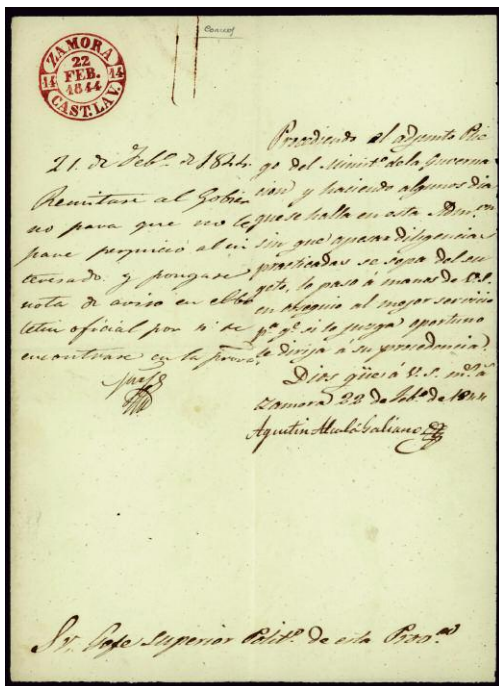 Correos
ZAMORA
22
FEB.
1844
14 14
CAST. LA V.
21. de Feb.º de 1844.
Remitase al Gobier
no para que no le
pare perjuicio al in
teresado y pongase
nota de aviso en el bo
letin oficial por si se
encontrase en la prov.ª
Procediendo el adjunto Plie
go del Minist.º de la Governa
cion y haciendo algunos dias
que se halla en esta Adm.on
sin que apesar diligencias
practicadas se sepa del su
geto, lo paso á manos de V.S.
en obsequio al mejor servicio
p.ª q.e si lo juzga oportuno
le dirija á su procedencia.
Dios gûe á V.S. m.s a.
Zamora 22 de Feb.º de 1844
Agustin Alcalá Galiano
Sr. Gefe Superior Polit.º de esta Prov.ª